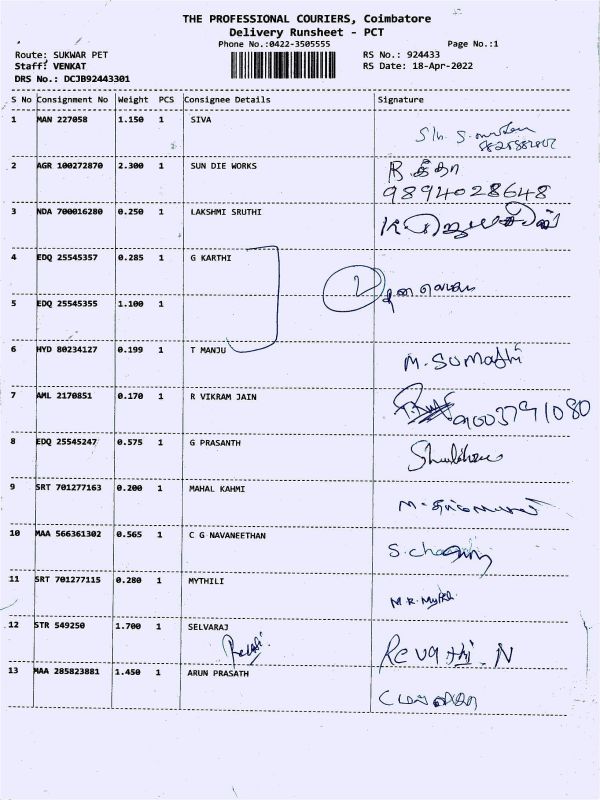 THE PROFESSIONAL COURIERS, Coimbatore
Delivery Runsheet - PCT
Phone No.:0422-3505555
Page No.:1
Route: SUKWAR PET
RS No.: 924433
Staff: VENKAT
RS Date: 18-Apr-2022
DRS No.: DCJB92443301
S No Consignment No Weight PCS Consignee Details Signature
1 MAN 227058 1.150 1 SIVA
2 AGR 100272870 2.300 1 SUN DIE WORKS
9894028648
3 NDA 700016280 0.250 1 LAKSHMI SRUTHI
4 EDQ 25545357 0.285 1 G KARTHI
2
5 EDQ 25545355 1.100 1
6 HYD 80234127 0.199 1 T MANJU
M. Sumathi
7 AML 2170851 0.170 1 R VIKRAM JAIN
9003791080
8 EDQ 25545247 0.575 1 G PRASANTH
9 SRT 701277163 0.200 1 MAHAL KAHMI
10 MAA 566361302 0.565 1 C G NAVANEETHAN
11 SRT 701277115 0.280 1 MYTHILI
12 STR 549250 1.700 1 SELVARAJ
Revathi. N
13 MAA 285823881 1.450 1 ARUN PRASATH